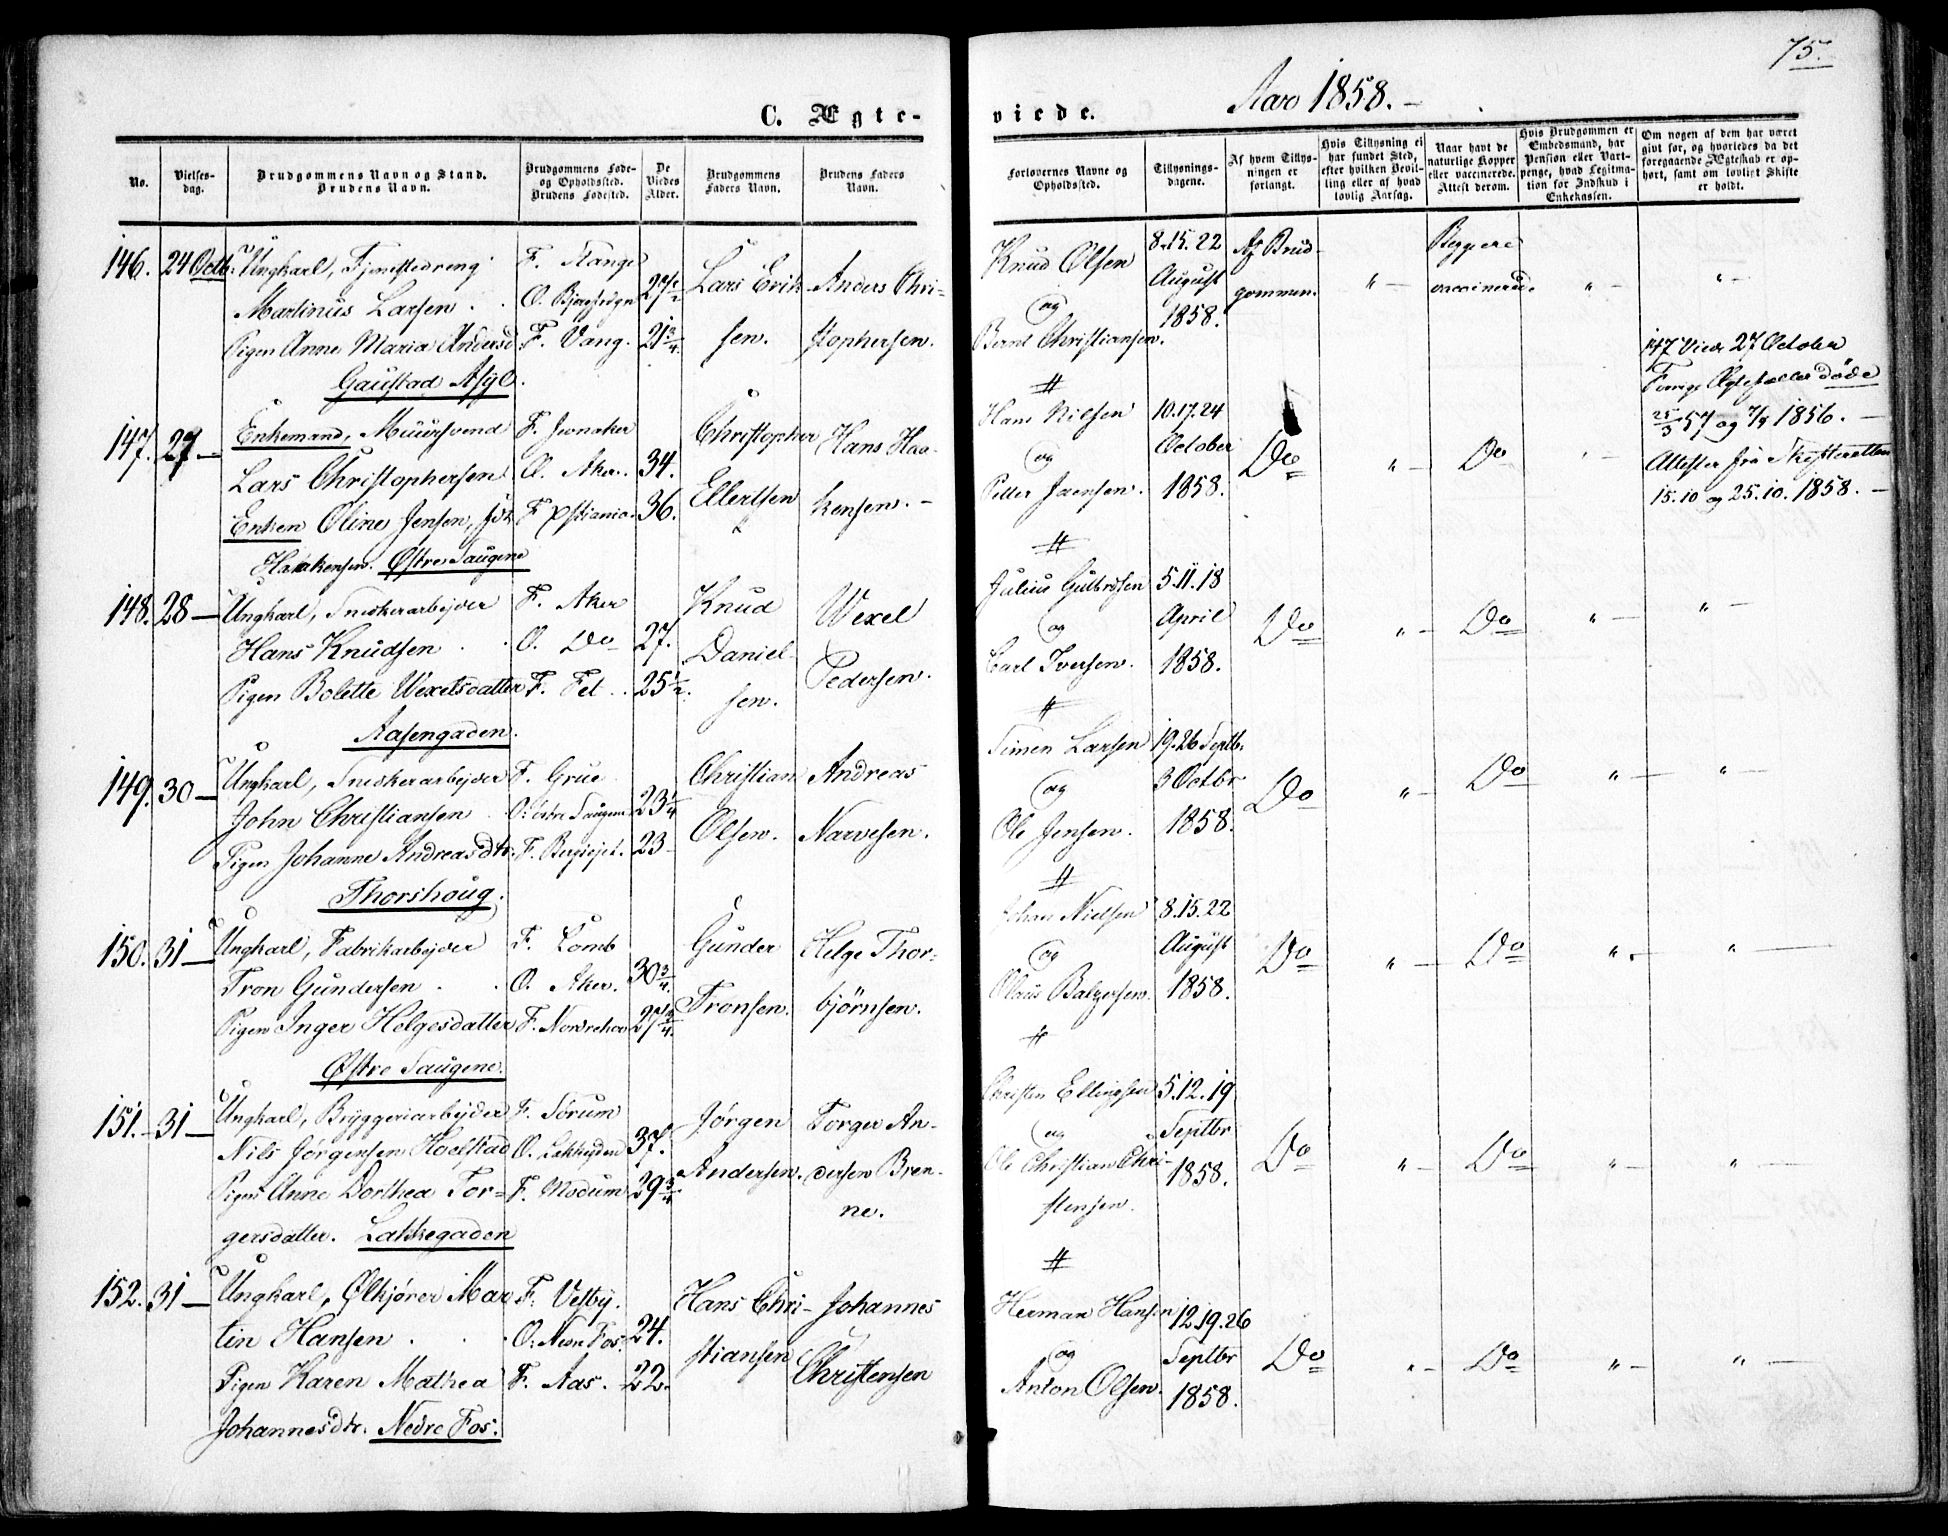 75.
C. Ægte-
viede. Aar 1858. -
No.
Vielses-
dag.
Brudgommens Navn og Stand.
Brudens Navn.
Brudgommens Føde-
og Opholdssted.
Brudens Fødested.
De
Viedes
Alder.
Brudgommens
Faders Navn.
Brudens Faders
Navn.
Forlovernes Navne og
Opholdssted.
Tillysnings-
dagene.
Af hvem Tillys-
ningen er
forlangt.
Hvis Tillysning ei
har fundet Sted,
efter hvilken Bevil-
ling eller af hvad
lovlig Aarsag.
Naar havt de
naturlige Kopper
eller vaccinerede.
Attest derom.
Hvis Brudgommen er
Embedsmand, har
Pension eller Vart-
penge, hvad Legitima-
tion for Indskud i
Enkekassen.
Om nogen af dem har været
givt for, og hvorledes da det
foregaaende Ægteskab er op-
hørt, samt om lovligt Skifte
er holdt.
146. 24 Octb. Ungkarl,
Martinus Larsen.
Pigen Anne Maria Andersd
Gaustad Asyl.
F. Stange
O.
F. Vang.
27½
21¾
Lars Erik-
sen.
Anders Chri-
stophersen.
Knud Olsen
og
Bernt Christiansen.
8. 15. 22
August
1858.
Af Brud-
gommen.
" -
Begge ere
vaccinerede.
" -
" -
147. 27 - Enkemand, Muursvend
Lars Christophersen
Enken Oline Jensen, f.
Haakensen. Østre Saugene
F. Jevnaker
O. Aker.
F. Xstiania.
34.
36.
Christopher
Ellertsen
Hans Haa-
kensen. -
Hans Nielsen
og
Petter Jaensen.
10. 17. 24
October
1858.
Do
" -
Do
147 Viede 27 October
Forrige Ægtefæller døde
25/3 57 og 7/9 1856. -
Attester fra Skifteretten
15.10 og 25.10. 1858. -
148. 28 - Ungkarl, Snedkerarbejder
Hans Knudsen
Pigen Bolette Wexelsdatter
Aasengaden.
F. Aker
O. Do
F. Fet.
27.
25½.
Knud
Daniel-
sen.
Wexel
Pedersen.
Julius Gulbrdsen
og
Carl Iversen.
5. 11. 18
April
1858.
Do
" -
Do
" -
" -
149. 30 - Ungkarl, Snedkerarbejder
John Christiansen
Pigen Johanne Andreasdtr.
Thorshoug.
F. Grue
O: østre Saugene
F.
23¼
23
Christian
Olsen.
Andreas
Narvesen.
Simen Larsen
og
Ole Jensen.
19. 26 Septb.
3 Octbr
1858.
Do
" -
Do
" -
" -
150. 31 - Ungkarl, Fabrikarbejder
Tron Gundersen.
Pigen Inger Helgesdatter
Østre Saugene.
F. Lomb
O. Aker.
F. Norderhov
30¾.
27¾.
Gunder
Tronsen.
Helge Thor-
bjørnsen.
Johan Nielsen
og
Olaus Balzersen.
8. 15. 22
August
1858.
Do
" -
Do
" -
" -
151. 31 - Ungkarl, Bryggeriarbejder
Nils Jørgensen Hoelstad
Pigen Anne Dorthea Tor-
gersdatter. Lakkegaden
F. Sørum
O. Lakkegden
F. Modum
37.
29¾
Jørgen
Andersen.
Torger An-
dersen Bren-
ne.
Christen Ellingsen
og
Ole Christian Chri-
stensen.
5. 12. 19
Septbr
1858.
Do
" -
Do
" -
" -
152. 31 - Ungkarl, Ølkjører Mar
tin Hansen.
Pigen Karen Mathea
Johannesdtr. Nedre Fos.
F. Vestby.
O: Nedre Fos.
F. Aas.
24.
22.
Hans Chri-
stiansen
Johannes
Christensen
Herman Hansen
og
Anton Olsen.
12. 19. 26
Septbr
1858.
Do
" -
Do
" -
" -